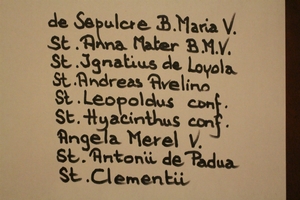 de Sepulcre B.Maria V.
St. Anna Mater B.M.V.
St. Ignatius de Loyola
St. Andreas Avelino
St. Leopoldus conf.
St. Hyacinthus conf.
Angela Merel V.
St. Antonii de Padua
St. Clementii